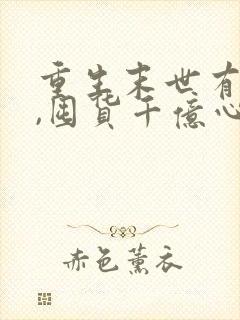 重生末世有
,囤货千億心
赤色薰衣